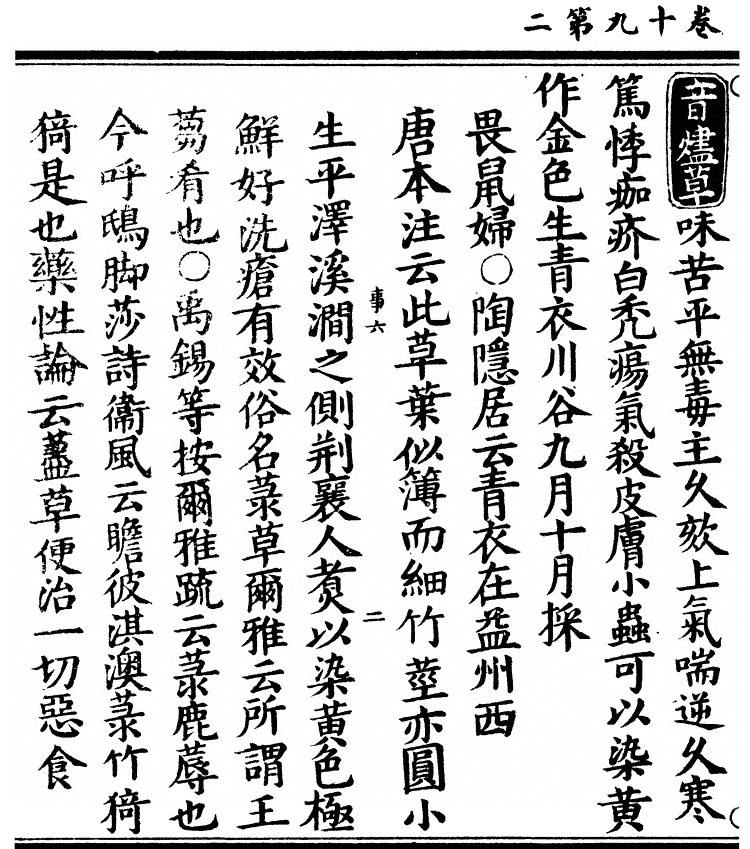 卷十九第二
音燼草味苦平無毒主久欬上氣喘逆久寒
驚悸痂疥白禿瘍氣殺皮膚小蟲可以染黄
作金色生青衣川谷九月十月採
畏鼠婦○陶隱居云青衣在益州西
唐本注云此草葉似簿而細竹莖亦圓小
事六
二
生平澤溪澗之側荆襄人煑以染黄色極
鮮好洗瘡有效俗名菉草爾雅云所謂王
芻者也○禹錫等按爾雅疏云菉鹿蓐也
今呼鴟脚莎詩衞風云瞻彼淇澳菉竹猗
猗是也藥性論云藎草便治一切惡食